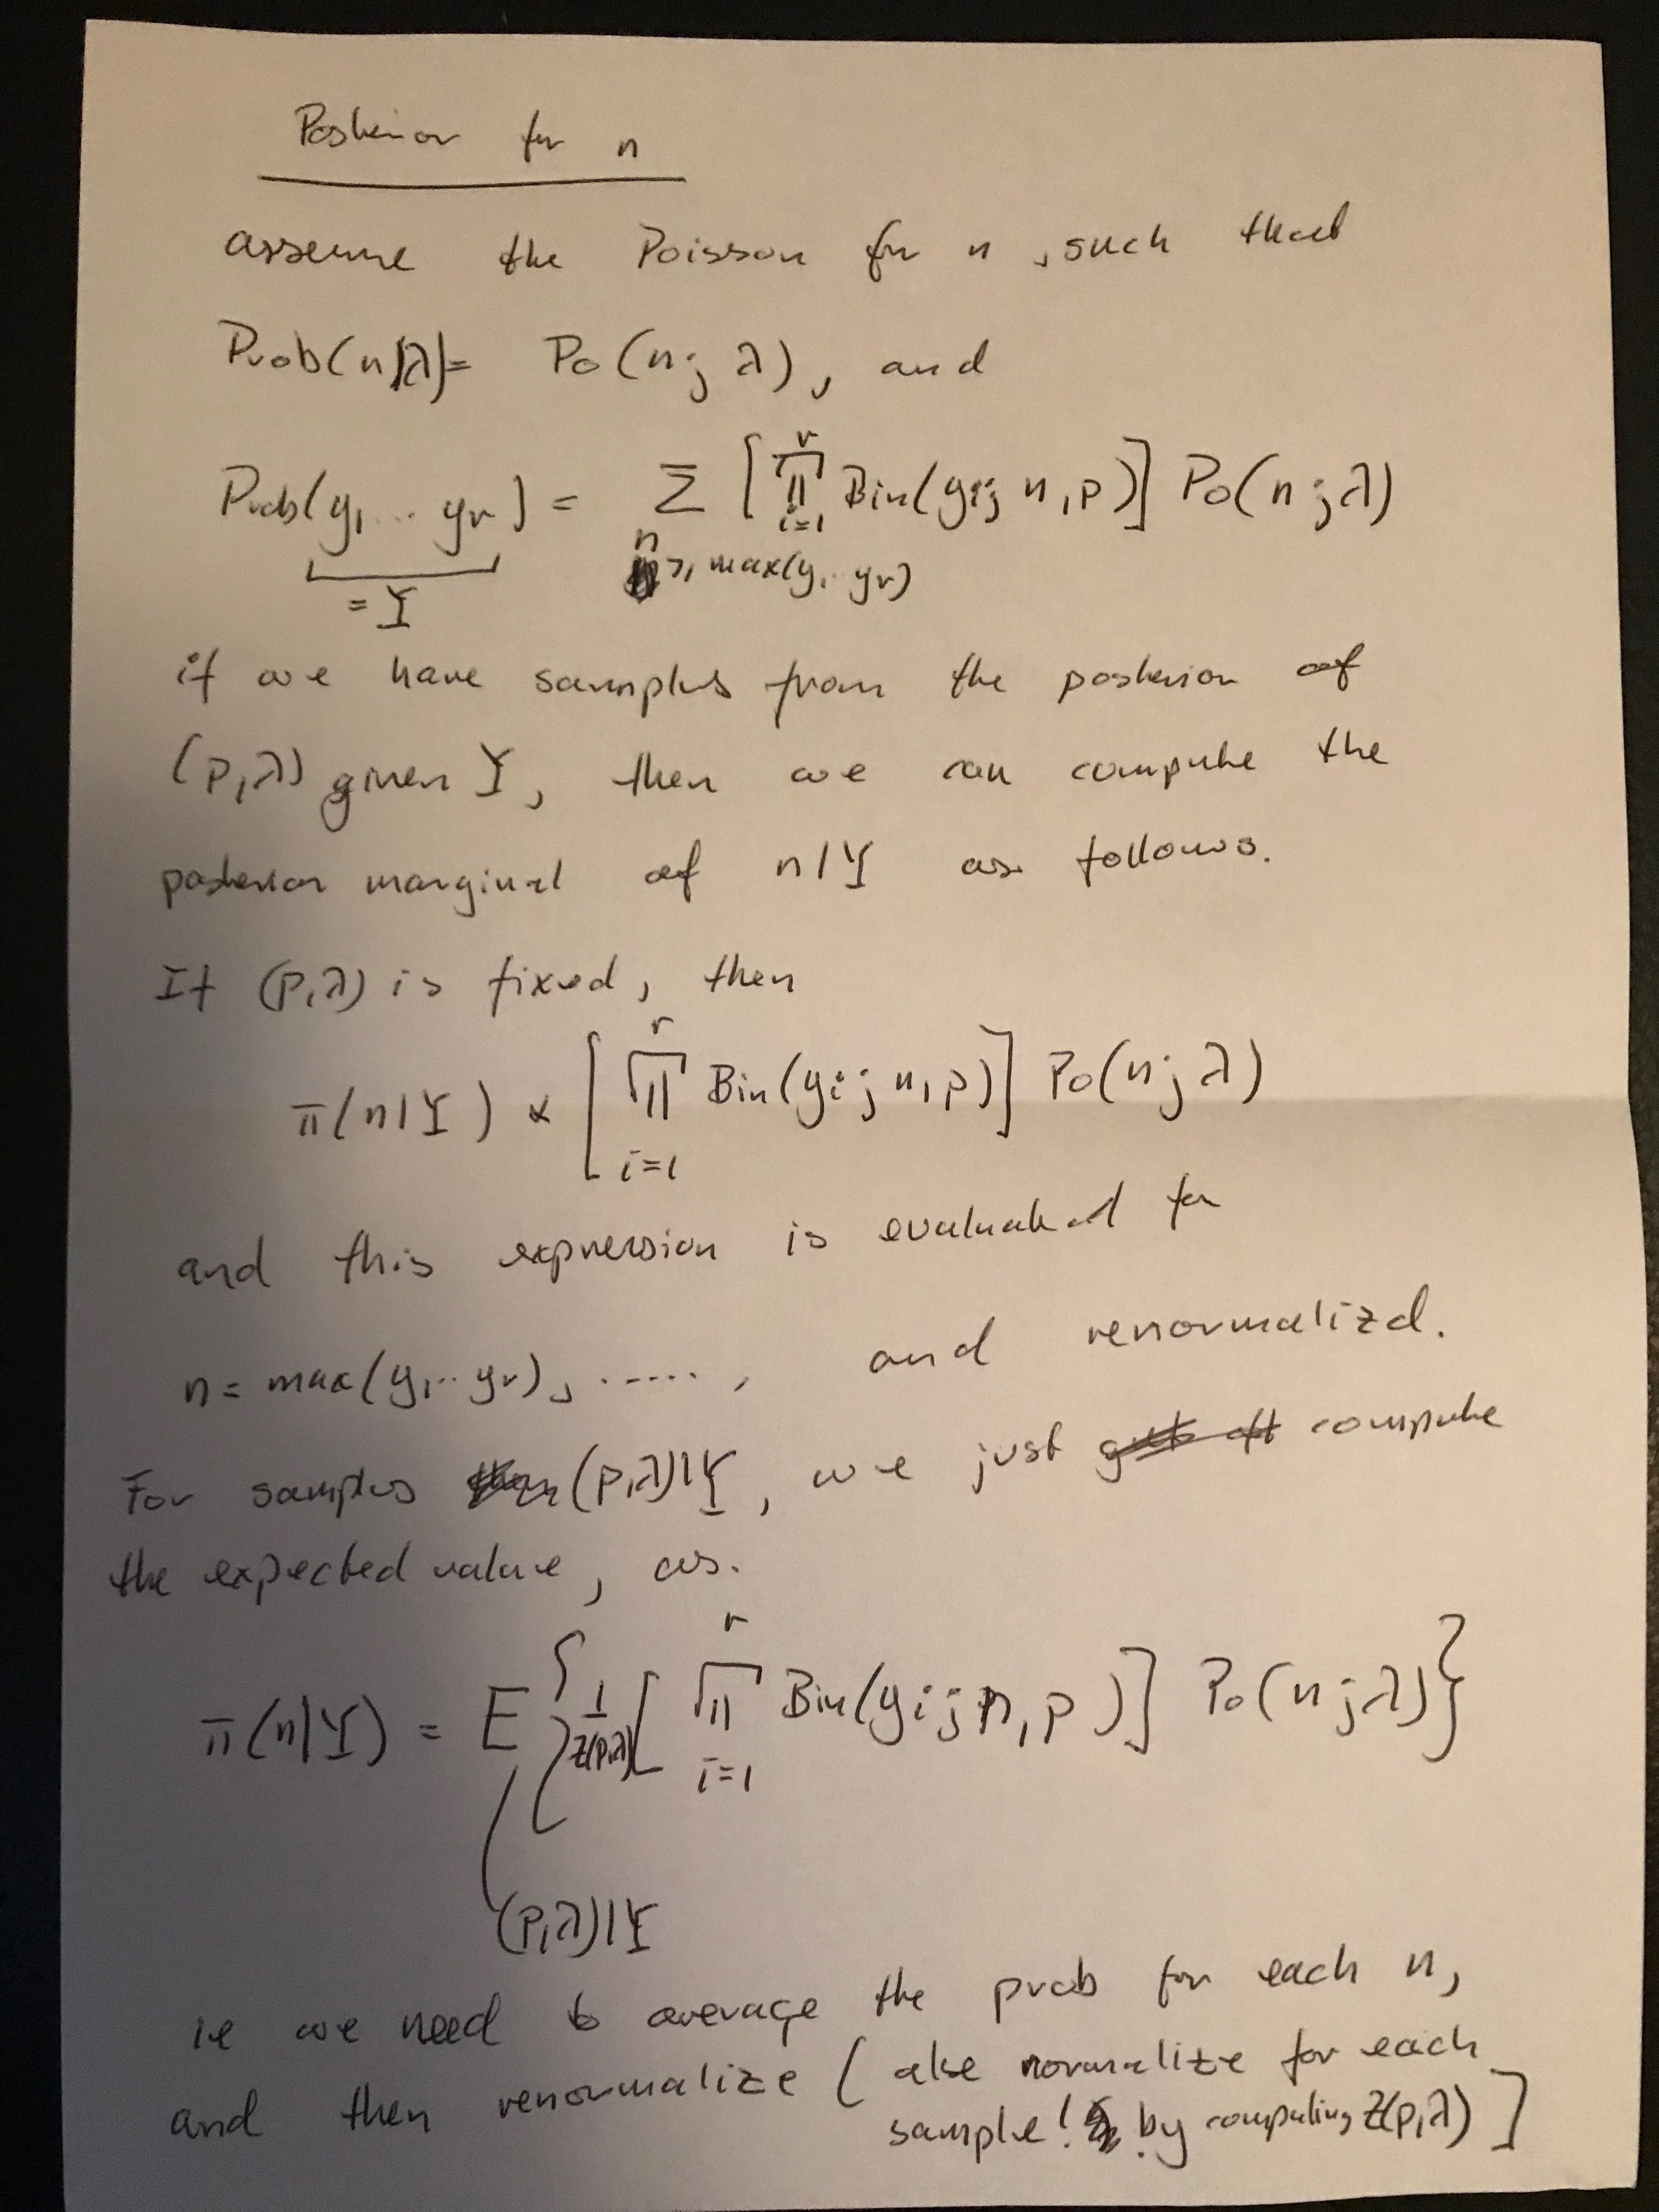 Posterior for n
assume the Poisson for n, such that
Prob(n|λ) = Po(n; λ), and
Prob(y₁...yᵣ) = Σ [∏ᵢ₌₁ʳ Bin(yᵢ; n, p)] Po(n; λ)
= Y n ≥ max(y₁..yᵣ)
if we have samples from the posterior of
(p,λ) given Y, then we can compute the
posterior marginal of n|Y as follows.
If (p,λ) is fixed, then
π(n|Y) ∝ [∏ᵢ₌₁ʳ Bin(yᵢ; n, p)] Po(n; λ)
and this expression is evaluated for
n = max(y₁..yᵣ), ....., and renormalizd.
For samples (p,λ)|Y, we just compute
the expected value, as.
π(n|Y) = E { 1/Z(p,λ) [∏ᵢ₌₁ʳ Bin(yᵢ; n, p)] Po(n; λ) }
(p,λ)|Y
ie we need to average the prob for each n,
and then renormalize ( also normalize for each
sample! by computing Z(p,λ) ]